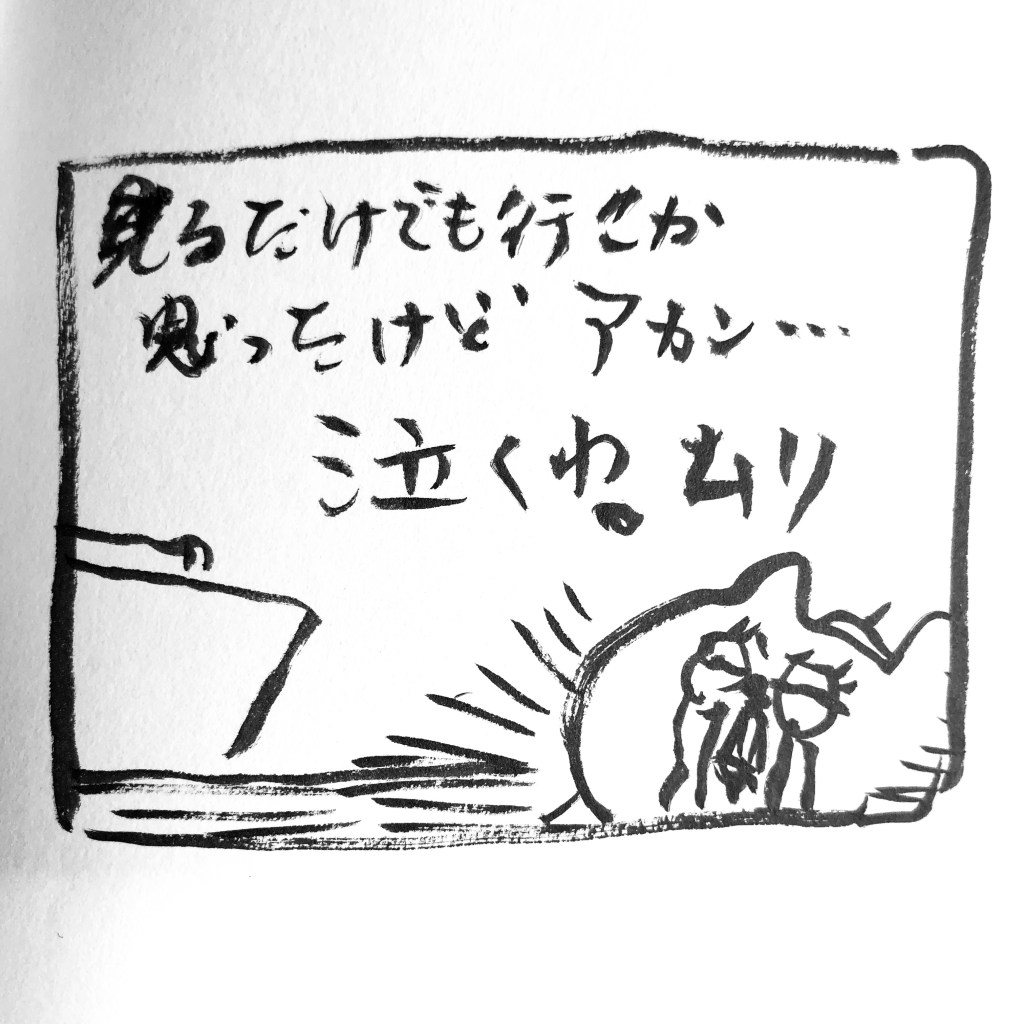 見るだけでも行こか
思ったけど アカン…
泣くわ。ムリ